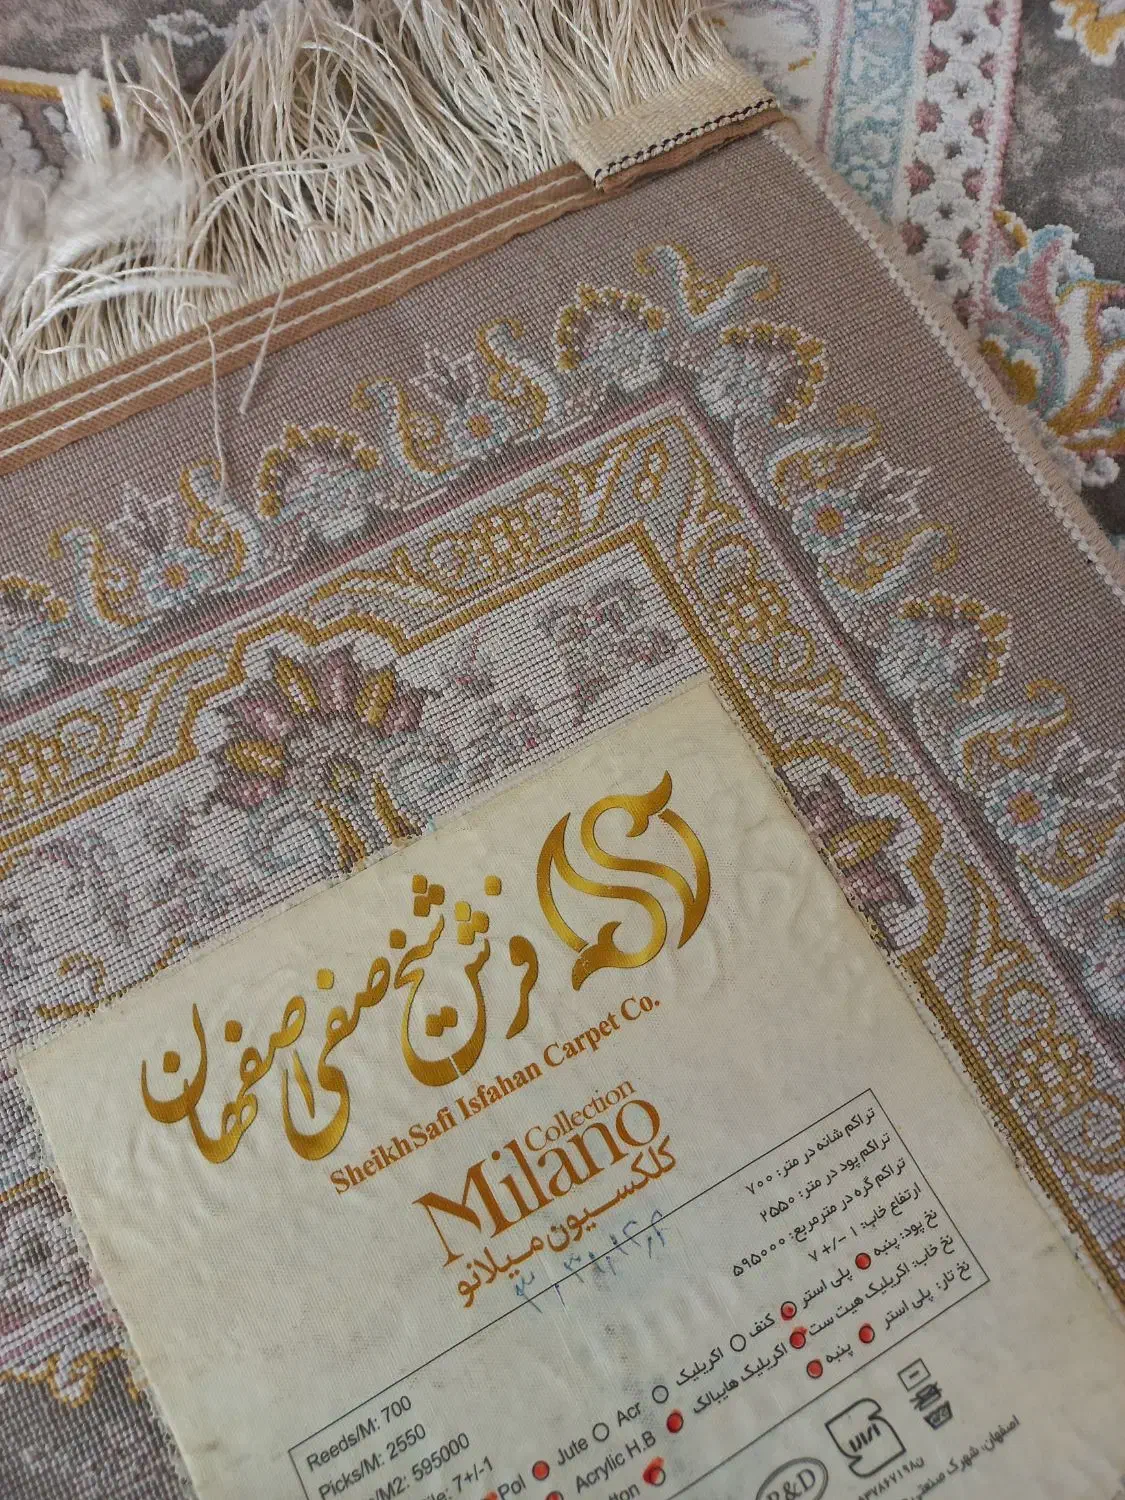 فرش شیخ صفی اصفهان
SheikhSafi Isfahan Carpet Co.
Collection
Milano
کلکسیون میلانو
تراکم شانه در متر: ۷۰۰
تراکم پود در متر: ۲۵۵۰
تراکم گره در مترمربع: ۵۹۵۰۰۰
ارتفاع خاب: ۱ -/+ ۷
نخ پود: پنبه پلی استر کنف اکریلیک
نخ خاب: اکریلیک هیت ست اکریلیک هایبالک
نخ تار: پلی استر پنبه
Reeds/M: 700
Picks/M: 2550
/M2: 595000
7+/-1
Pol Jute Acr
Acrylic H.B
R&D
اصفهان، شهرک